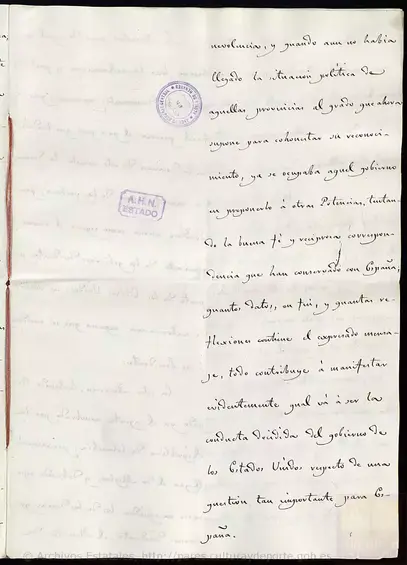 nevolencia, y quando aun no habia
llegado la situacion politica de
aquellas provincias al grado que ahora
supone para cohonestar su reconoci-
miento, ya se ocupaba aquel gobierno
en proponerlo á otras Potencias, tratan-
do la buena fé y reciproca correspon-
dencia que han conservado con España,
quantos datos, en fin, y quantas re-
flexiones contiene el expresado mensa-
je, todo contribuye á manifestar
evidentemente qual vá á ser la
conducta decidida del gobierno de
los Estados Unidos respecto de una
question tan importante para Es-
paña.
A.H.N.
ESTADO
© Archivos Estatales, http://pares.culturaydeporte.gob.es